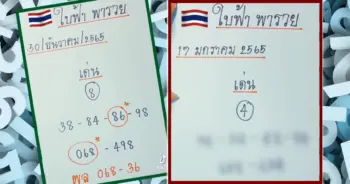 ใบฟ้า พารวย
30/ธันวาคม/2565
เด่น
8
38-84-86-98
068-498
ผล 068-36
ใบฟ้า พารวย
17 มกราคม 2565
เด่น
4